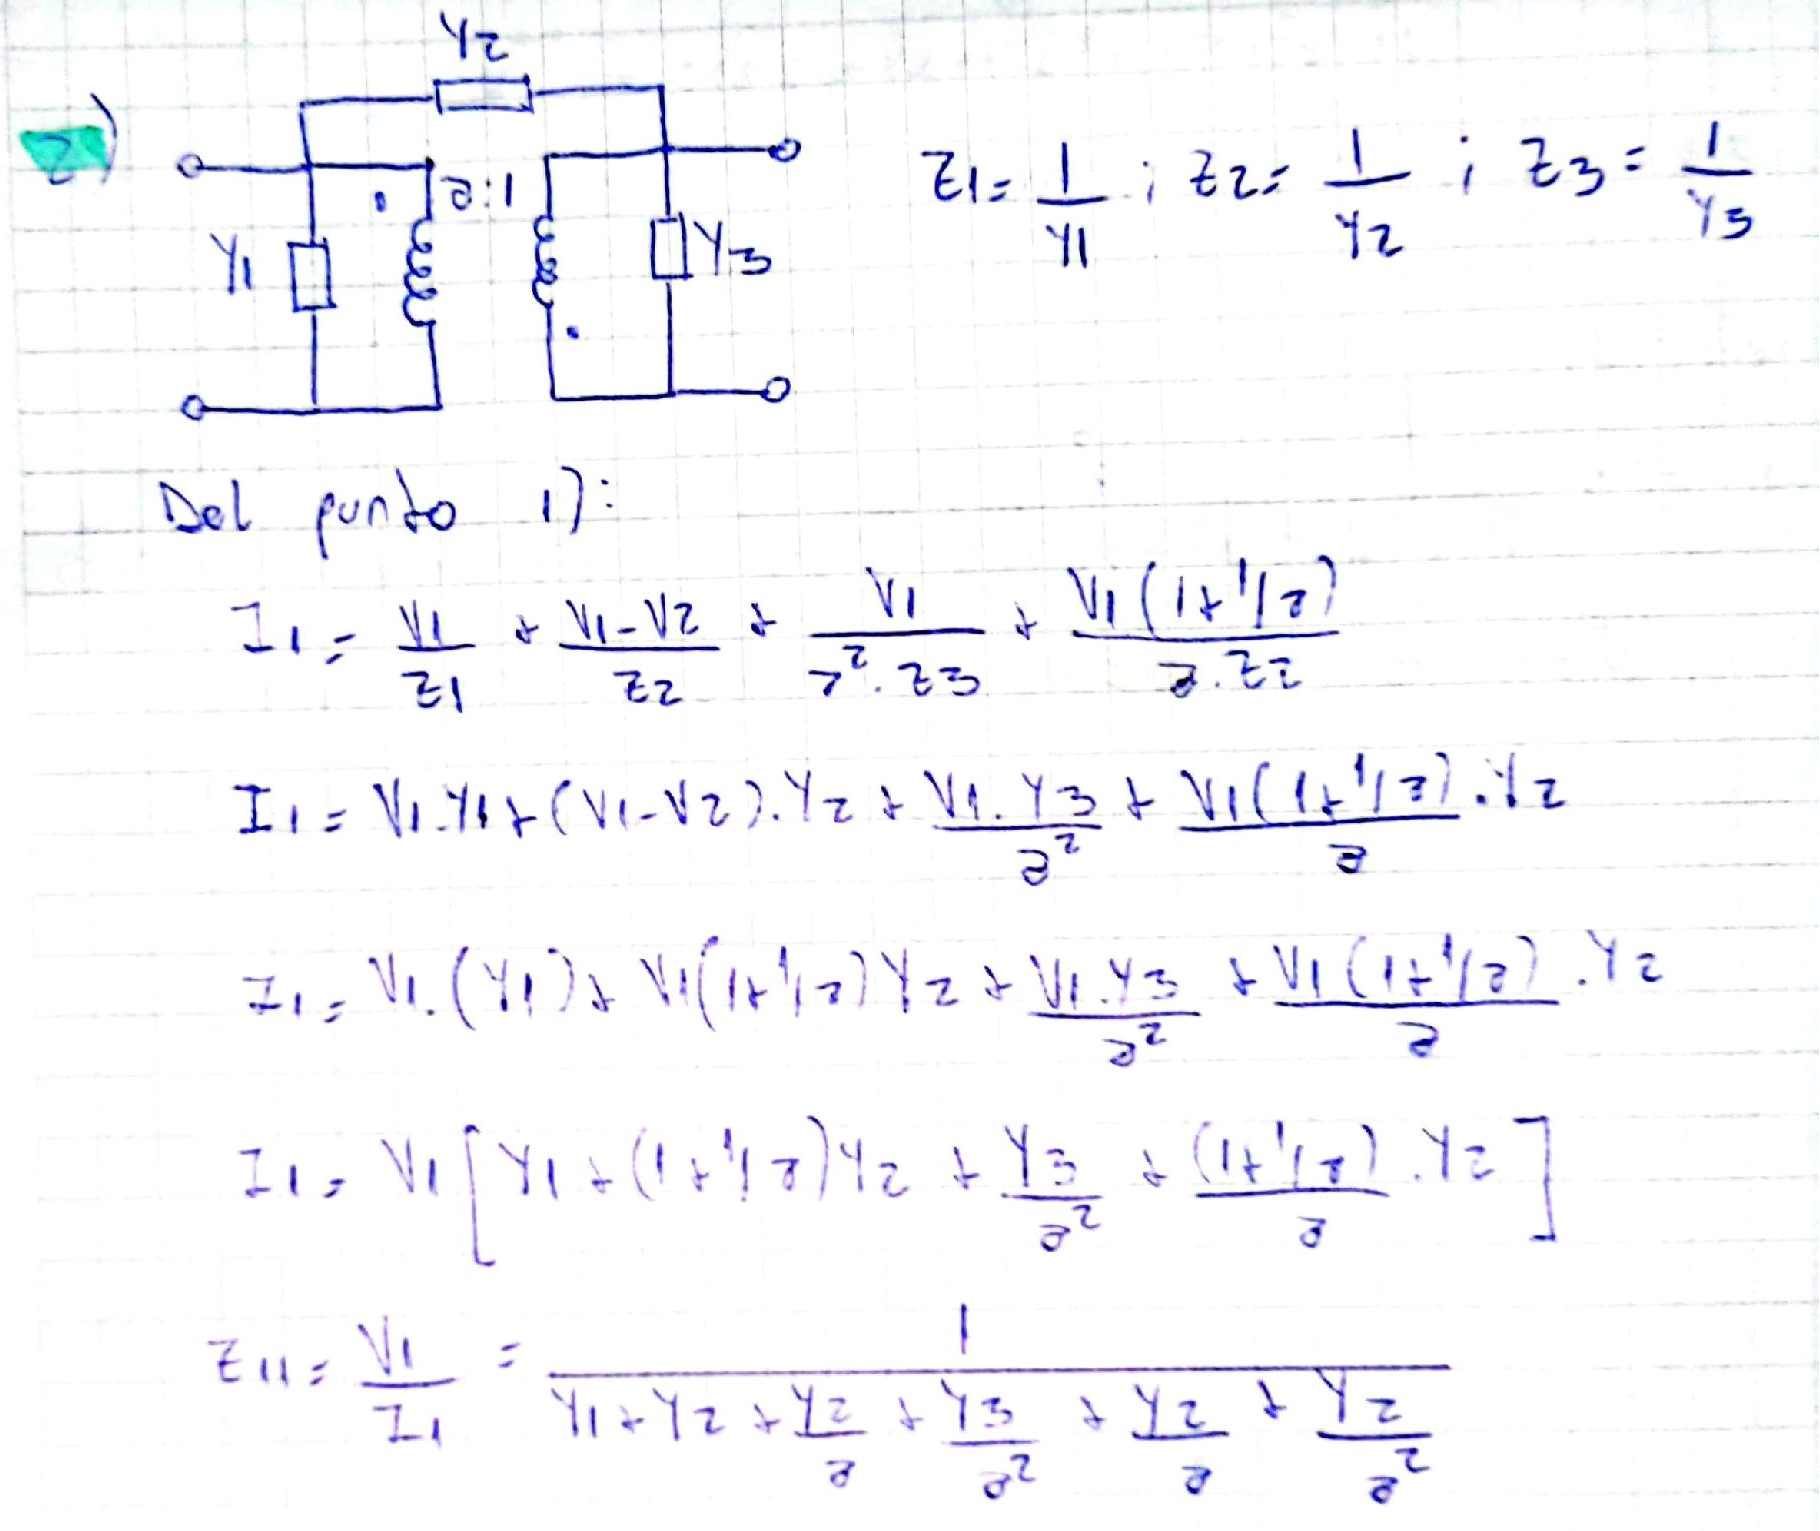 Y2
2)
a:1
Y1
Y3
Z1 = 1/Y1 ; Z2 = 1/Y2 ; Z3 = 1/Y3
Del punto 1):
I1 = V1/Z1 + (V1-V2)/Z2 + V1/(a².Z3) + V1(1+1/a)/(a.Z2)
I1 = V1.Y1 + (V1-V2).Y2 + V1.Y3/a² + V1(1+1/a)/a .Y2
I1 = V1.(Y1) + V1(1+1/a)Y2 + V1.Y3/a² + V1(1+1/a)/a .Y2
I1 = V1[Y1 + (1+1/a)Y2 + Y3/a² + (1+1/a)/a .Y2]
Z11 = V1/I1 = 1/(Y1 + Y2 + Y2/a + Y3/a² + Y2/a + Y2/a²)